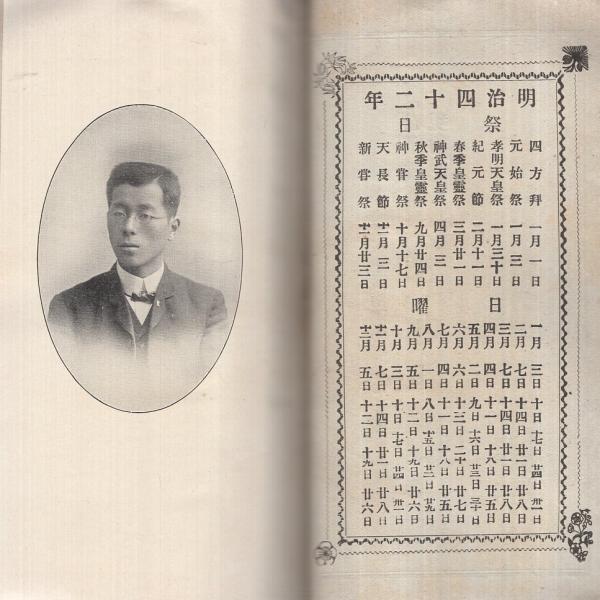 明治四十二年
祭日
四方拜 一月一日
元始祭 一月三日
孝明天皇祭 一月三十日
紀元節 二月十一日
春季皇靈祭 三月廿一日
神武天皇祭 四月三日
秋季皇靈祭 九月廿四日
神甞祭 十月十七日
天長節 十一月三日
新甞祭 十一月廿三日
日曜
一月 三日 十日 十七日 廿四日 卅一日
二月 七日 十四日 廿一日 廿八日
三月 七日 十四日 廿一日 廿八日
四月 四日 十一日 十八日 廿五日
五月 二日 九日 十六日 廿三日 三十日
六月 六日 十三日 二十日 廿七日
七月 四日 十一日 十八日 廿五日
八月 一日 八日 十五日 廿二日 廿九日
九月 五日 十二日 十九日 廿六日
十月 三日 十日 十七日 廿四日 卅一日
十一月 七日 十四日 廿一日 廿八日
十二月 五日 十二日 十九日 廿六日